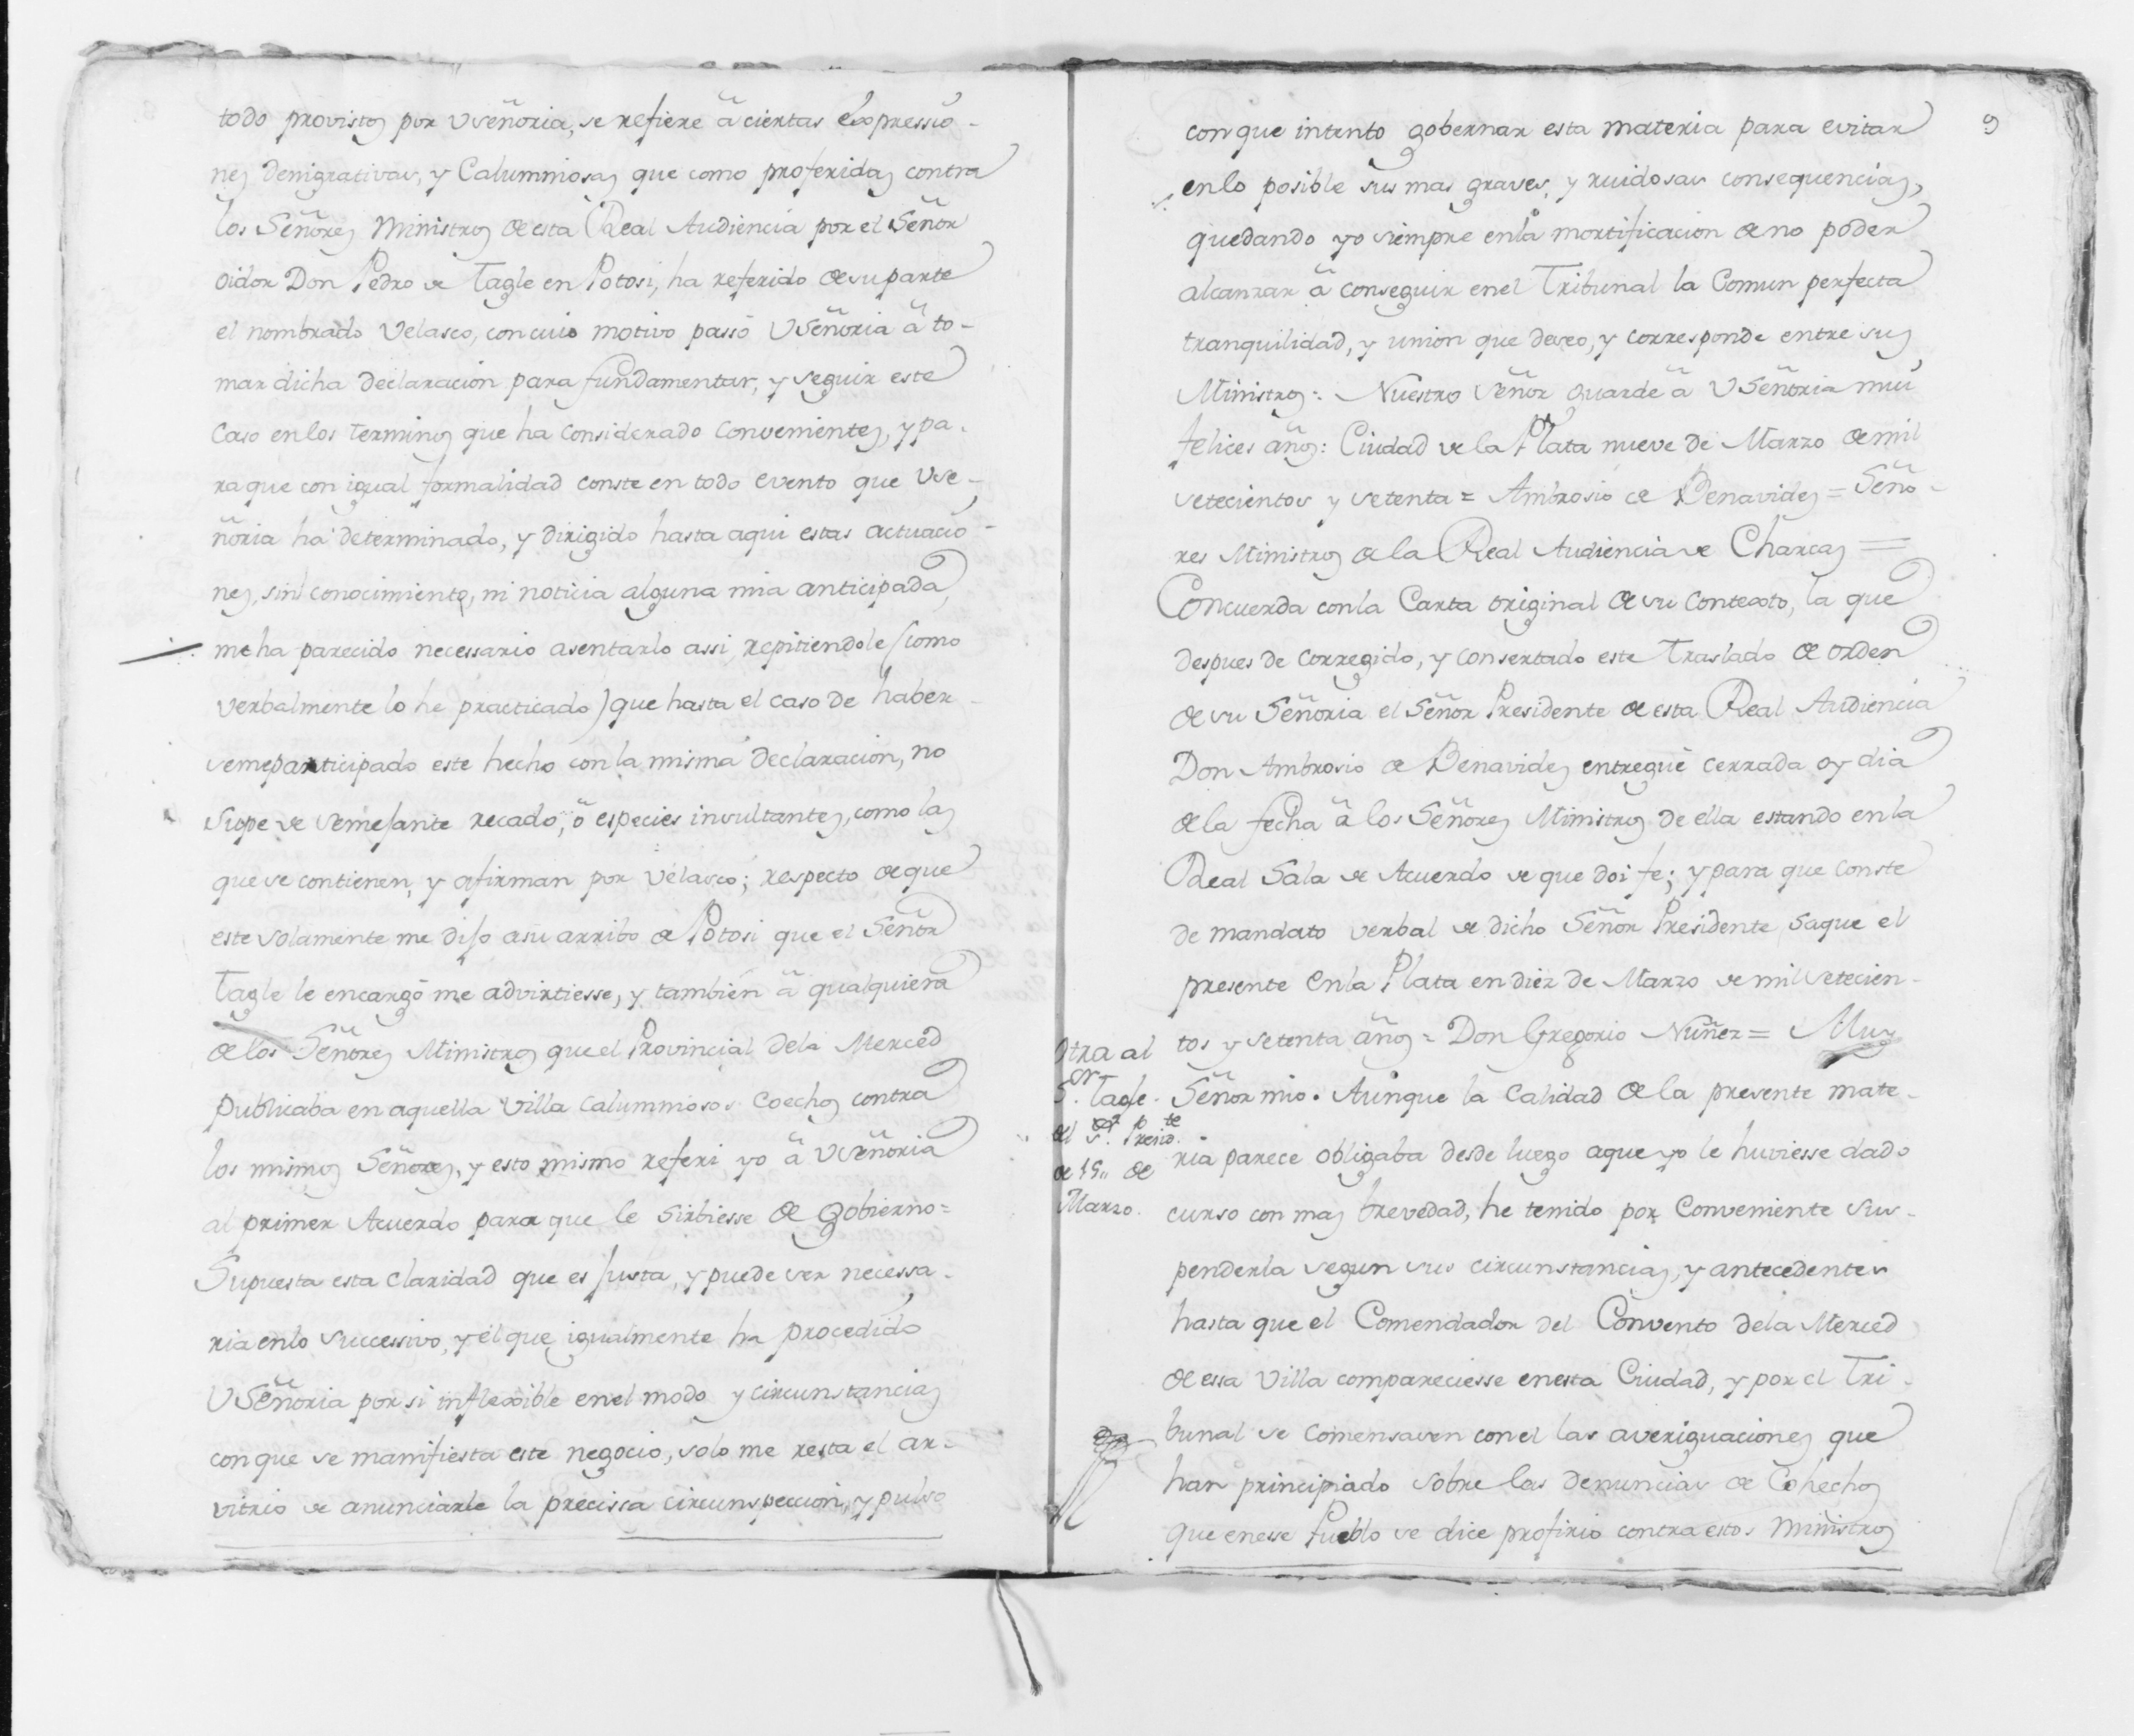 todo provistos por Vseñoria, se refiere â ciertas expressio-
nes denigrativas, y Calumniosas que como proferidas contra
los Señores Ministros de esta Real Audiencia por el Señor
Oidor Don Pedro de Tagle en Potosi, ha referido de su parte
el nombrado Velasco, con cuio motivo passô VSeñoria â to-
mar dicha declaracion para fundamentar, y seguir este
Caso en los terminos que ha considerado convenientes, y pa-
ra que con igual formalidad conste en todo evento que Vse-
ñoria ha determinado, y dirigido hasta aqui estas actuacio-
nes, sin conocimiento, ni noticia alguna mia anticipada,
me ha parecido necessario asentarlo assi, repitiendole (como
verbalmente lo he practicado) que hasta el caso de haber-
seme participado este hecho con la misma declaracion, no
supe de semejante recado, ô especies insultantes, como las
que se contienen, y afirman por Velasco; respecto de que
este solamente me dijo a su arribo de Potosi que el Señor
Tagle le encargô me advirtiesse, y tambien â qualquiera
de los Señores Ministros que el Provincial dela Merced
publicaba en aquella Villa calumniosos Coechos contra
los mismos Señores, y esto mismo referi yo â Vseñoria
al primer Acuerdo para que le sirbiesse de gobierno=
Supuesta esta claridad que es justa, y puede ser necessa-
ria enlo successivo, y el que igualmente ha procedido
VSeñoria por si inflexible enel modo y circunstancias
con que se manifiesta este negocio, solo me resta el ar-
vitrio de anunciarle la precissa circunspeccion, y pulso
9
con que intento gobernar esta materia para evitar
enlo posible sus mas graves, y ruidosas consequencias,
quedando yo siempre enla mortificacion de no poder
alcanzar â conseguir enel Tribunal la Comun perfecta
tranquilidad, y union que deseo, y corresponde entre sus
Ministros: Nuestro Señor guarde â VSeñoria mui
felices años: Ciudad de la Plata nueve de Marzo de mil
setecientos y setenta = Ambrosio de Benavides = Seño-
res Ministros de la Real Audiencia de Charcas =
Concuerda con la Carta original de su Contexto, la que
despues de corregido, y consertado este Traslado de orden
de su Señoria el Señor Presidente de esta Real Audiencia
Don Ambrosio de Benavides entreguê cerrada oy dia
de la fecha â los Señores Ministros de ella estando en la
Real Sala de Acuerdo de que doi fe; y para que conste
de mandato verbal de dicho Señor Presidente, saque el
presente en la Plata en diez de Marzo de mil setecien-
tos y setenta años = Don Gregorio Nuñez = Muy
Otra al
Sr. Tagle.
del Sor. Preside.
de 15,, de
Marzo.
Señor mio. Aunque la Calidad de la presente mate-
ria parece obligaba desde luego a que yo le huviesse dado
curso con mas brevedad, he tenido por Conveniente sus-
penderla segun sus circunstancias, y antecedentes
hasta que el Comendador del Convento dela Merced
de essa Villa compareciesse en esta Ciudad, y por el Tri-
bunal se comensasen con el las averiguaciones que
han principiado sobre las denuncias de Cohechos
que en esse Pueblo se dice profirio contra estos Ministros